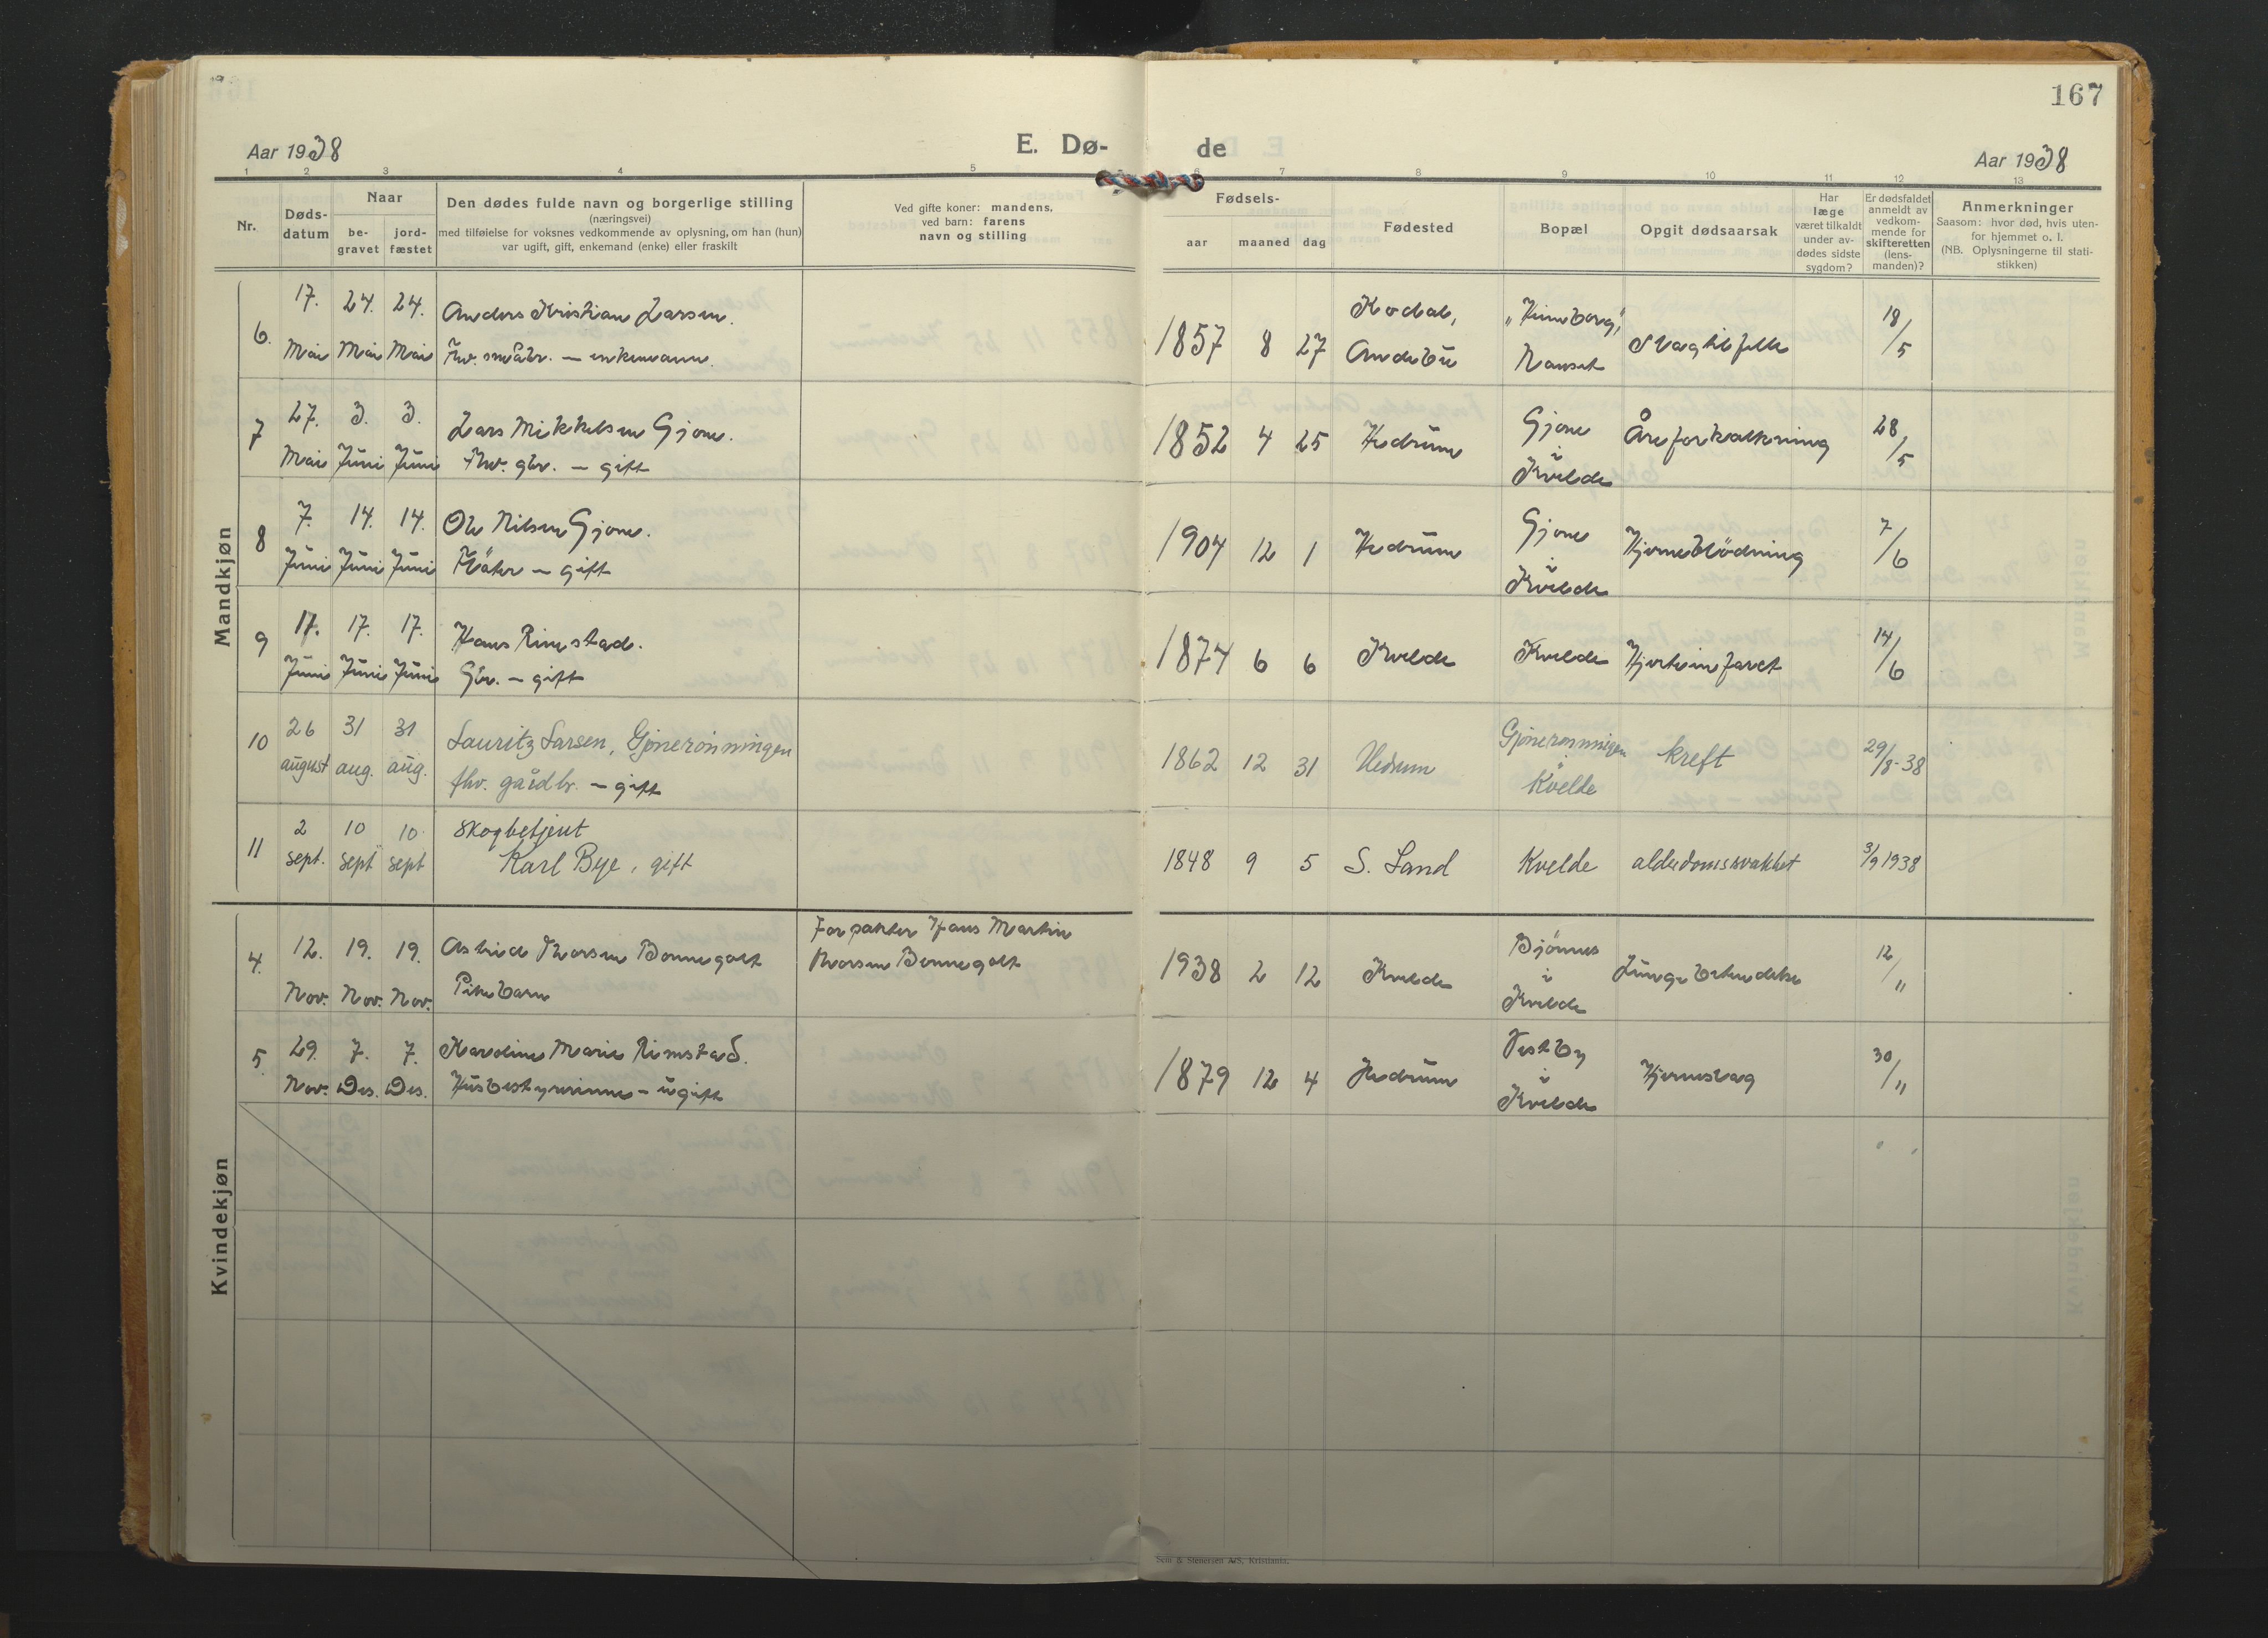 167
Aar 1938
E. Dø-
de
Aar 1938
1 2 3 4 5 6 7 8 9 10 11 12 13
Nr.
Døds-
datum
Naar
be-
gravet
jord-
fæstet
Den dødes fulde navn og borgerlige stilling
(næringsvei)
med tilføielse for voksnes vedkommende av oplysning, om han (hun)
var ugift, gift, enkemand (enke) eller fraskilt
Ved gifte koner: mandens,
ved barn: farens
navn og stilling
Fødsels-
aar maaned dag
Fødested
Bopæl
Opgit dødsaarsak
Har
læge
været tilkaldt
under av-
dødes sidste
sygdom?
Er dødsfaldet
anmeldt av
vedkom-
mende for
skifteretten
(lens-
manden)?
Anmerkninger
Saasom: hvor død, hvis uten-
for hjemmet o. l.
(NB. Oplysningerne til stati-
stikken)
Mandkjøn
6. 17. Mai 24. Mai 24. Mai
Anders Kristian Larsen.
Fhv. småbr. — enkemann.
1857 8 27
Kodal,
Andebu
Nanset
18/5
7 27. Mai 3. Juni 3. Juni
Lars Mikkelsen Gjone.
Fhv. gbr. — gift
1852 4 25 Hedrum
Gjone
i
Kvelde
Åreforkalkning 28/5
8 7. Juni 14. Juni 14. Juni
Ole Nilsen Gjone.
Fløter — gift
1904 12 1 Hedrum
Gjone
i
Kvelde
Hjerneblödning 7/6
9 17. Juni 17. Juni 17. Juni
Hans Rimstad.
Gbr. — gift
1874 6 6 Kvelde Kvelde Hjerteinfarct 14/6
10 26 august 31 aug. 31 aug.
Lauritz Larsen, Gjonerønningen
fhv. gårdbr. — gift
1862 12 31 Hedrum
Gjonerønningen
Kvelde
kreft 29/8-38
11 2 sept. 10 sept 10 sept
Skogbetjent
Karl Bye, gift
1848 9 5 S. Land Kvelde alderdomssvakhet 3/9 1938
Kvindekjøn
4. 12. Nov. 19. Nov. 19. Nov.
Astrid Thorsen Bonnegolt
Pikebarn
Forpakter Hans Martin
Thorsen Bonnegolt
1938 2 12 Kvelde
Bjönnes
i
Kvelde
Lungebetendelse 12/11
5 29. Nov. 7. Des. 7. Des.
Karoline Marie Rimstad.
Husbestyrerinne — ugift
1879 12 4 Hedrum
Vestby
i
Kvelde
Hjerneslag 30/11
Sem & Stenersen A/S, Kristiania.